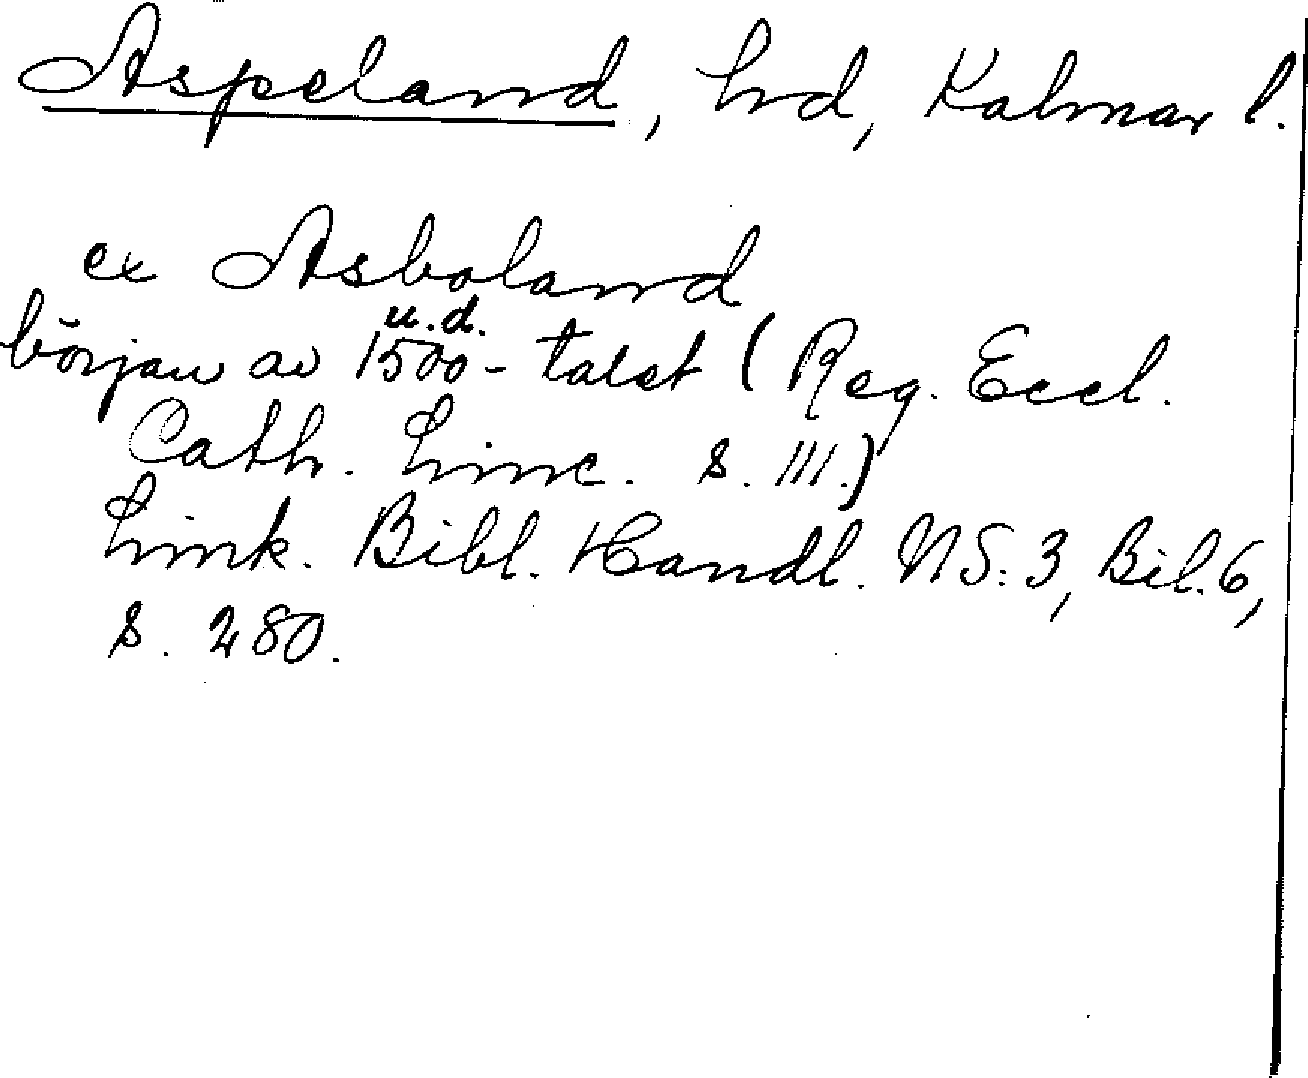 Aspeland, hd, Kalmar l.
ex Asboland
u.d.
början av 1500-talet (Reg. Eccl.
Cath. Linc. s. III.)
Link. Bibl. Handl. NS: 3, Bil. 6,
s. 280.